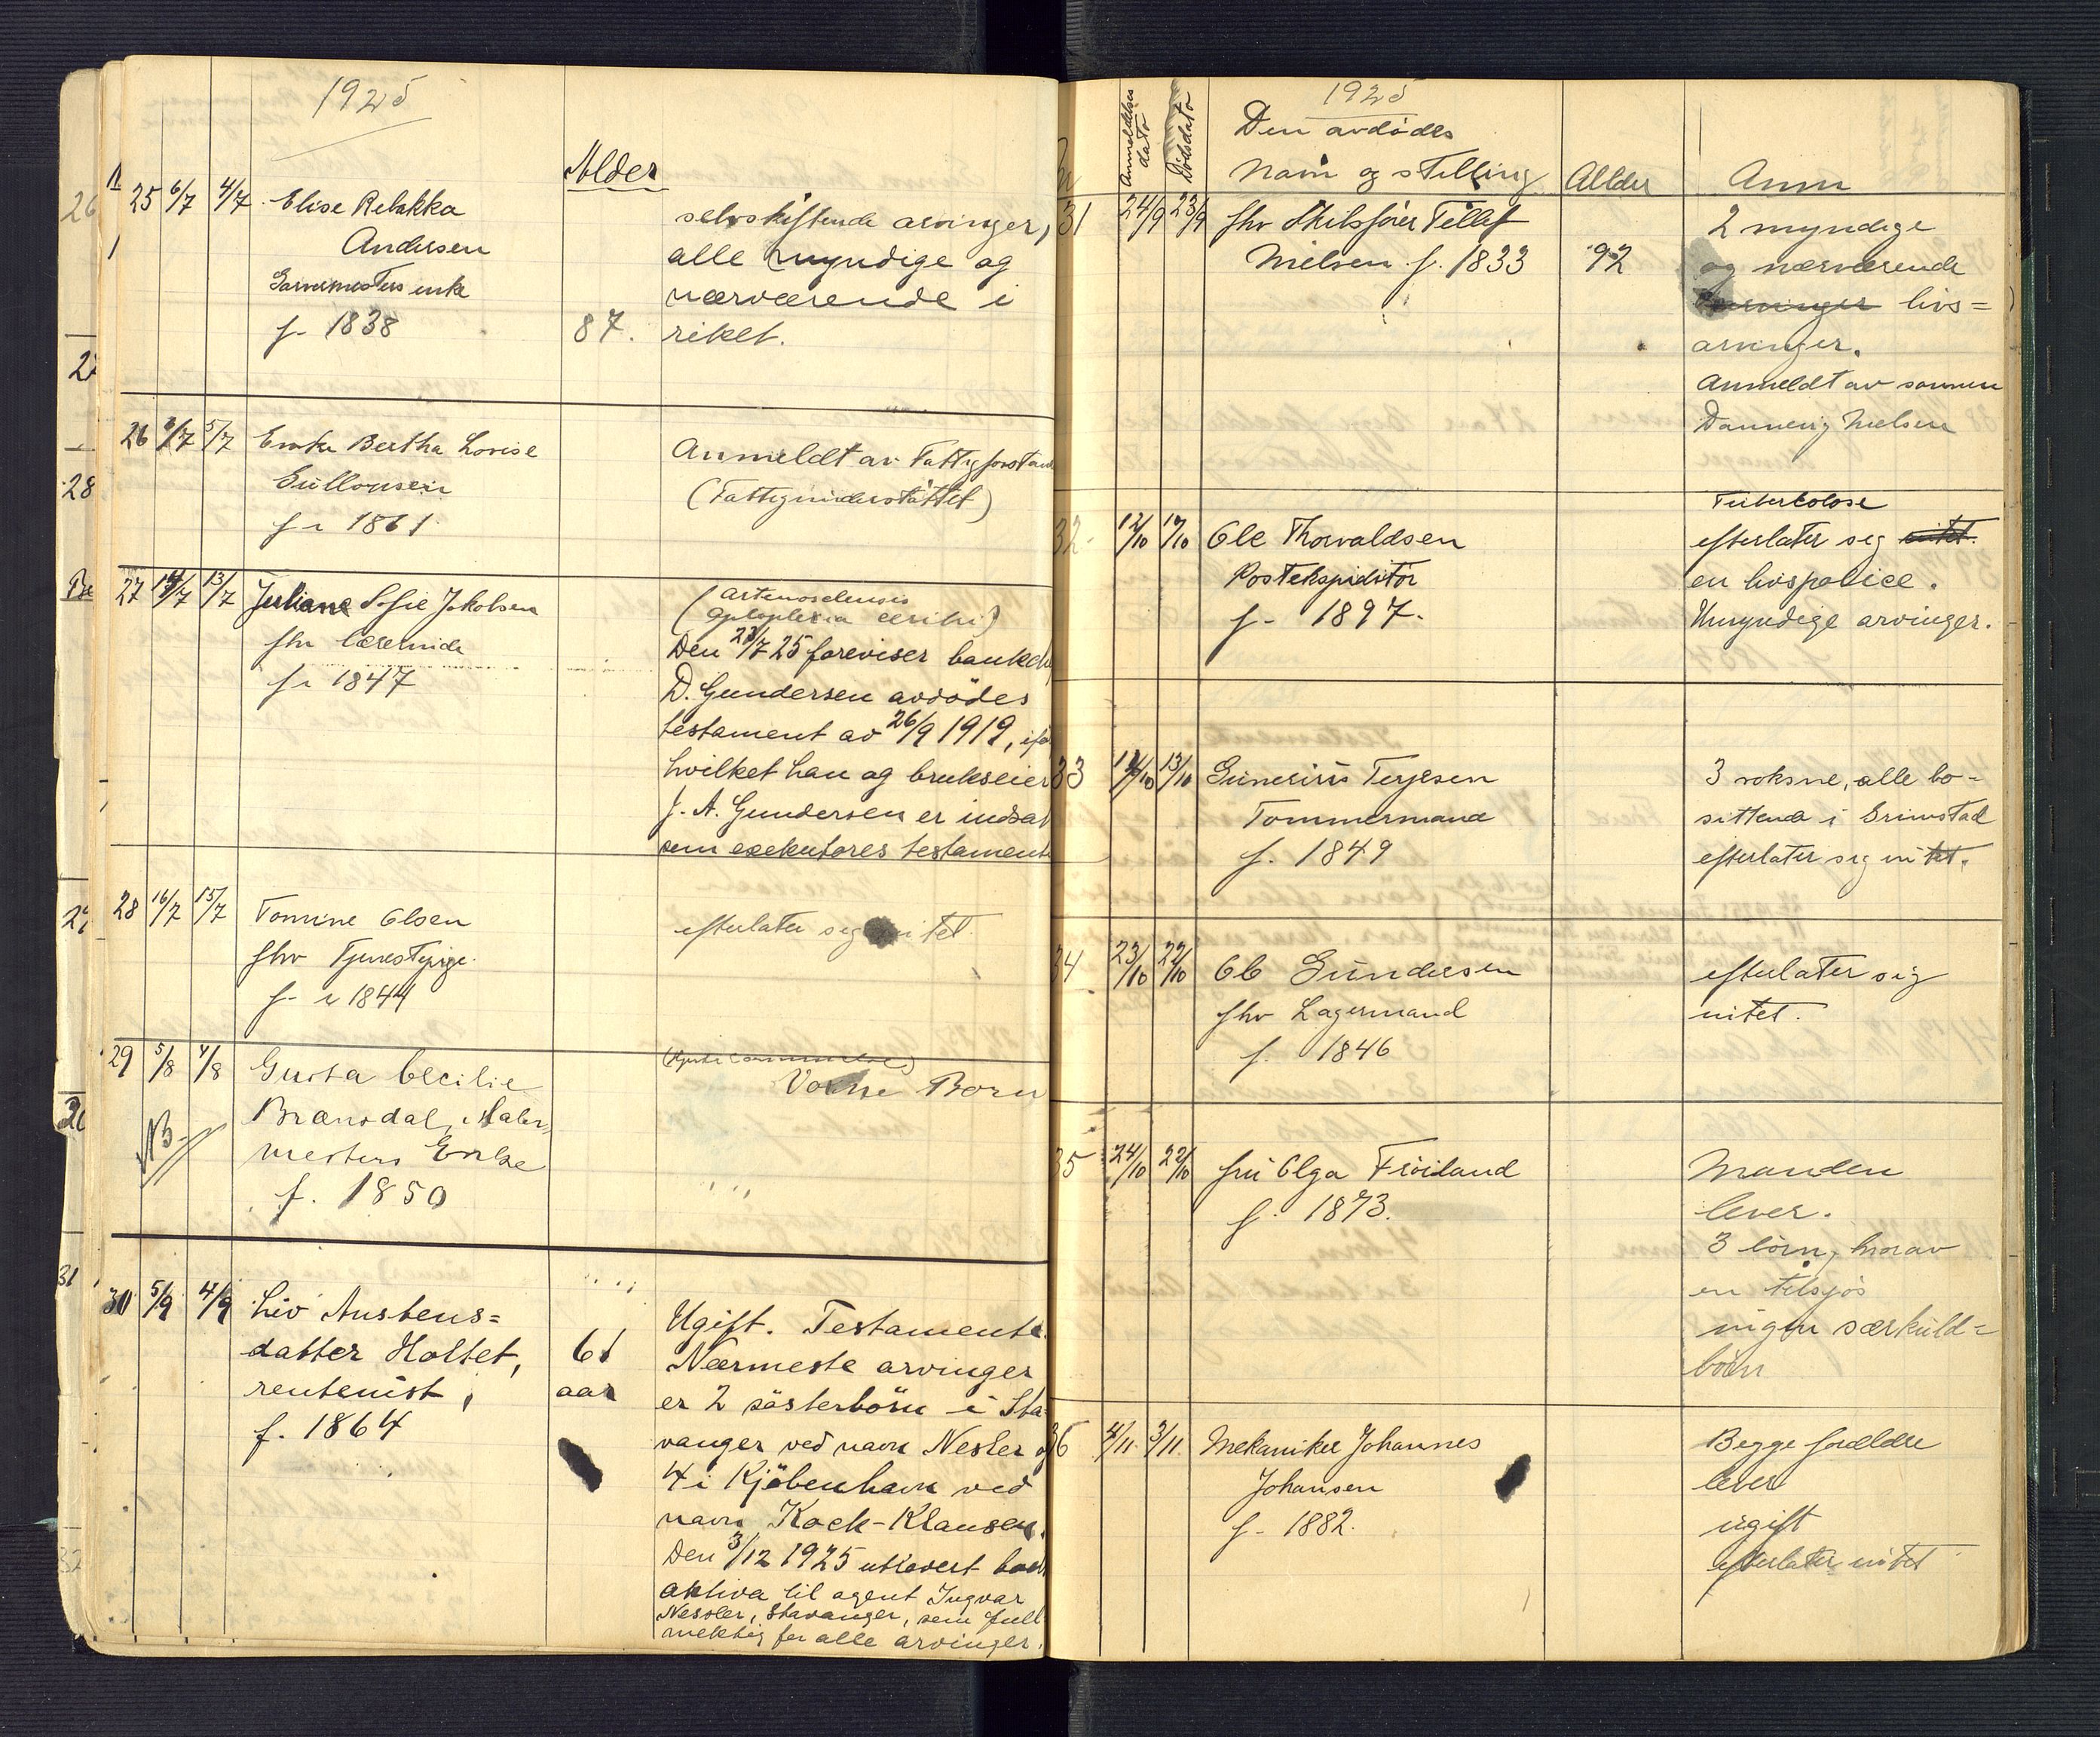 1925
Alder
25 6/7 4/7 Elise Rebekka
Andersen
Garvermesters enke
f. 1838
87.
selvskiftende arvinger,
alle myndige og
nærværende i
riket.
26 6/7 5/7 Enke Bertha Lovise
Gullovsen
f. 1861
Anmeldt av Fattigforstand
(Fattigunderstøttet)
27 14/7 13/7 Juliane Sofie Jakobsen
fhv lærerinde
f. 1847
Den 23/7 25 foreviser bankch
D. Gundersen avdödes
testament av 26/9 1919, ifø
hvilket han og brukseier
J. A. Gundersen er indsat
som exekutores testament
28 16/7 15/7 Tomine Olsen
fhv Tjenestepige.
f. 1844
efterlater sig intet.
29 5/8 4/8 Gusta Cecilie
Brænsdal, Maler
mesters Enke
f. 1850
NB.
Voksne Børn
30 5/9 4/9 Liv Austens=
datter Holtet,
rentenist,
f. 1864
61
aar
Ugift. Testamente.
Nærmeste arvinger
er 2 søsterbörn i Sta=
vanger ved navn Nesler og
4 i Kjöbenhavn ved
navn Kock-Klausen.
Den 3/12 1925 utlevert boets
aktiva til agent Ingvar
Nessler, Stavanger, som full
mektig for alle arvinger.
1925
Anmeldelses
dato
Dødsdato
Den avdødes
Navn og stilling
Alder
Anm
31 24/9 23/9 fhv Skibsfører Tellef
Nielsen f. 1833
92
2 myndige
og nærværende
arvinger livs=
arvinger.
Anmeldt av sønnen
Dannevig Nielsen
32 12/10 12/10 Ole Thorvaldsen
Postekspeditør
f. 1897.
Tuberkolose
efterlater seg intet.
en livspolice.
Umyndige arvinger.
33 14/10 13/10 Gunerius Terjesen
Tømmermand
f. 1849
3 voksne, alle bo-
sittende i Grimstad
efterlater sig intet.
34 23/10 22/10 Ole Gundersen
fhv Lagermand
f. 1846
efterlater sig
intet.
35 24/10 22/10 fru Olga Frøiland
f. 1873.
Manden
lever.
3 børn, hvorav
en tilsjøs
ingen særkuld=
børn
36 4/11. 3/11. Mekaniker Johannes
Johansen
f. 1882.
Begge foreldre
lever
ugift
efterlater intet